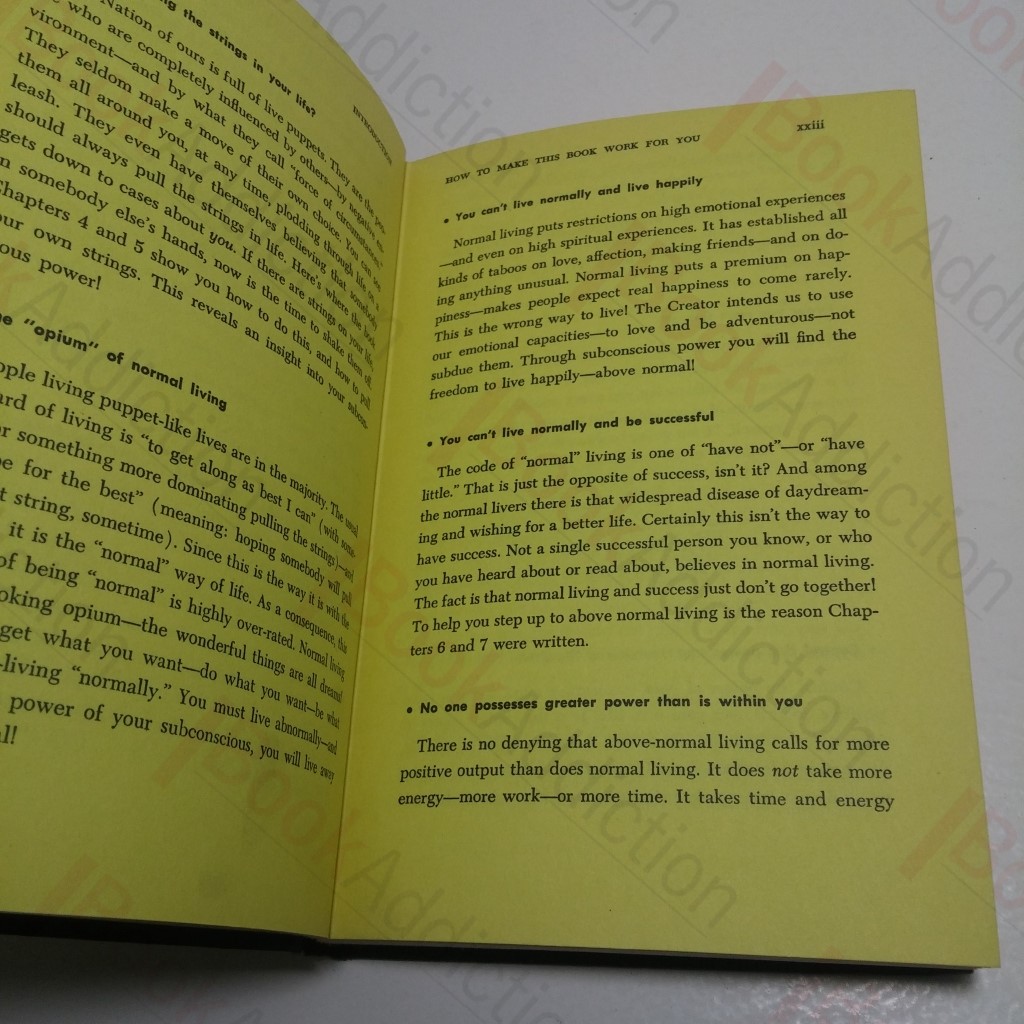 INTRODUCTION
the strings in your life?
Nation of ours is full of live puppets. They are the peo-
who are completely influenced by others—by negative en-
vironment—and by what they call "force of circumstances."
They seldom make a move of their own choice. You can see
them all around you, at any time, plodding through life on a
leash. They even have themselves believing that somebody
should always pull the strings in life. Here's where the book
gets down to cases about you. If there are strings on your life,
in somebody else's hands, now is the time to shake them off.
Chapters 4 and 5 show you how to do this, and how to pull
your own strings. This reveals an insight into your subcon-
ous power!
"opium" of normal living
ople living puppet-like lives are in the majority. The usual
ard of living is "to get along as best I can" (with some-
or something more dominating pulling the strings)—and
e for the best" (meaning: hoping somebody will pull
t string, sometime). Since this is the way it is with the
it is the "normal" way of life. As a consequence, this
of being "normal" is highly over-rated. Normal living
oking opium—the wonderful things are all dreams!
get what you want—do what you want—be what
-living "normally." You must live abnormally—and
power of your subconscious, you will live away
al!
HOW TO MAKE THIS BOOK WORK FOR YOU xxiii
• You can't live normally and live happily
Normal living puts restrictions on high emotional experiences
—and even on high spiritual experiences. It has established all
kinds of taboos on love, affection, making friends—and on do-
ing anything unusual. Normal living puts a premium on hap-
piness—makes people expect real happiness to come rarely.
This is the wrong way to live! The Creator intends us to use
our emotional capacities—to love and be adventurous—not
subdue them. Through subconscious power you will find the
freedom to live happily—above normal!
• You can't live normally and be successful
The code of "normal" living is one of "have not"—or "have
little." That is just the opposite of success, isn't it? And among
the normal livers there is that widespread disease of daydream-
ing and wishing for a better life. Certainly this isn't the way to
have success. Not a single successful person you know, or who
you have heard about or read about, believes in normal living.
The fact is that normal living and success just don't go together!
To help you step up to above normal living is the reason Chap-
ters 6 and 7 were written.
• No one possesses greater power than is within you
There is no denying that above-normal living calls for more
positive output than does normal living. It does not take more
energy—more work—or more time. It takes time and energy
BookAddiction